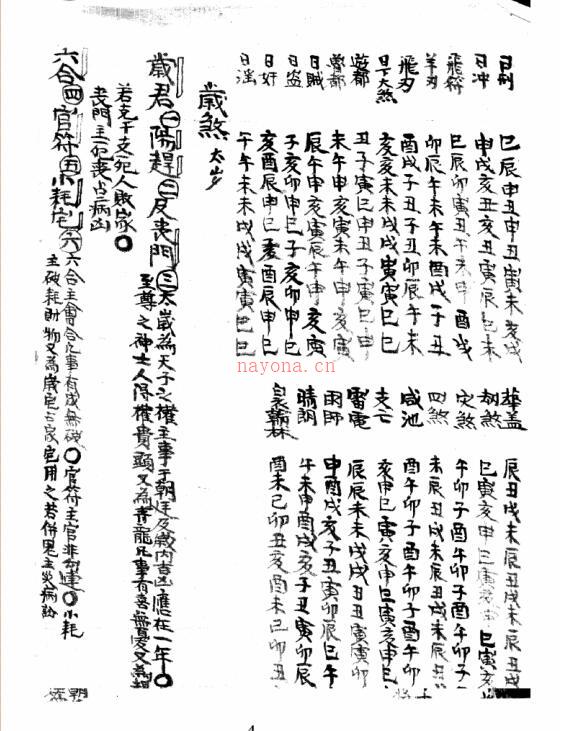 日刑
日冲
飛符 巳辰卯寅丑午未申酉戌
羊刃 卯辰午未午未酉戌子丑
飛刃 酉戌子丑子丑卯辰午未
日下大煞 亥亥未未戌戌寅寅巳巳
遊都 丑子寅巳申丑子寅巳申
魯都 未午申亥寅未午申亥寅
日賊 辰午申亥寅辰午申亥寅
日盗 子亥卯申巳子亥卯申巳
日奸 亥酉辰申巳亥酉辰申巳
日淫 午午未未戌戌寅寅巳巳
華盖 辰丑戌未辰丑戌未辰丑戌
劫煞 巳寅亥申巳寅亥申巳寅亥
灾煞 午卯子酉午卯子酉午卯子
四煞 未辰丑戌未辰丑戌未辰丑戌
咸池 酉午卯子酉午卯子酉午卯子
支亡 亥申巳寅亥申巳寅亥申巳
雷電 辰辰未未戌戌丑丑寅寅卯
雨師 申酉戌亥子丑寅卯辰巳午
晴朗 午未申酉戌亥子丑寅卯辰
翰林 酉未巳卯丑亥酉未巳卯
歲煞 太歲
歲君㊀陽趕㊁反喪門㊂太歲為天子之權主事于朝廷及歲内吉凶應在一年〇
至尊之神士人得權貴顕又為青龍凡事有喜無憂又為
若克干支宛人敗家〇
喪門主死喪占病凶
六合㊃官符㊄小耗宅㊅六合主會合凡事有成無破〇官符主官非勾連〇小耗
主破耗財物又為歲宅占家宅用之若併鬼主災病訟
nayona.cn
4